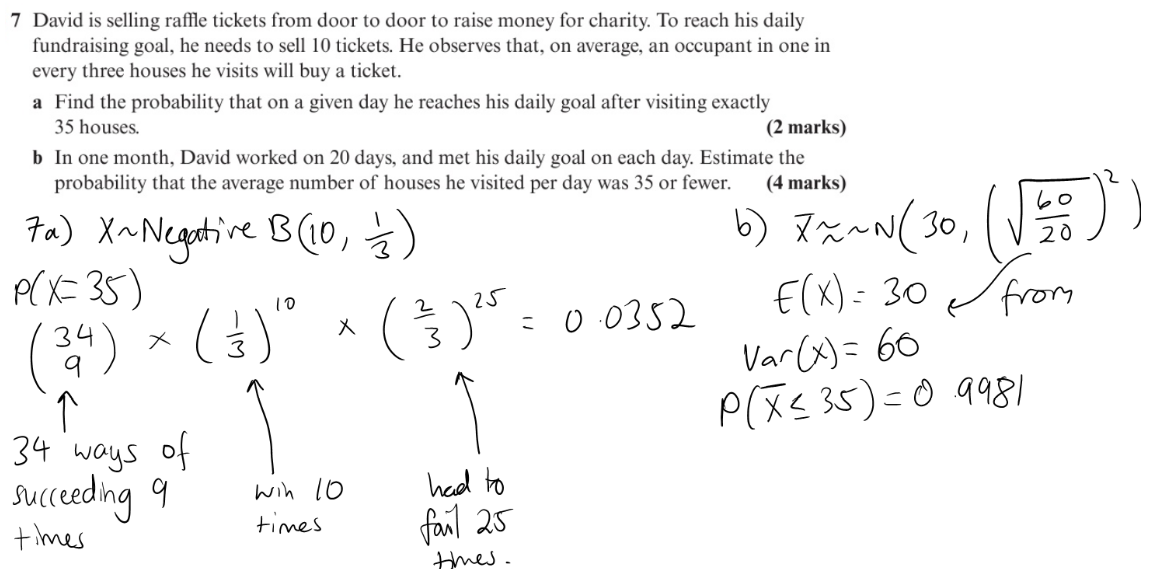 7 David is selling raffle tickets from door to door to raise money for charity. To reach his daily
fundraising goal, he needs to sell 10 tickets. He observes that, on average, an occupant in one in
every three houses he visits will buy a ticket.
a Find the probability that on a given day he reaches his daily goal after visiting exactly
35 houses. (2 marks)
b In one month, David worked on 20 days, and met his daily goal on each day. Estimate the
probability that the average number of houses he visited per day was 35 or fewer. (4 marks)
7a) X~Negative B(10, 1/3)
P(X=35)
(34 9) × (1/3)^10 × (2/3)^25 = 0.0352
34 ways of
succeeding 9
times
win 10
times
had to
fail 25
times.
b) X̄ ≈~N(30, (√(60/20))^2)
E(X)= 30 from
Var(X)= 60
P(X̄ ≤ 35) = 0.9981